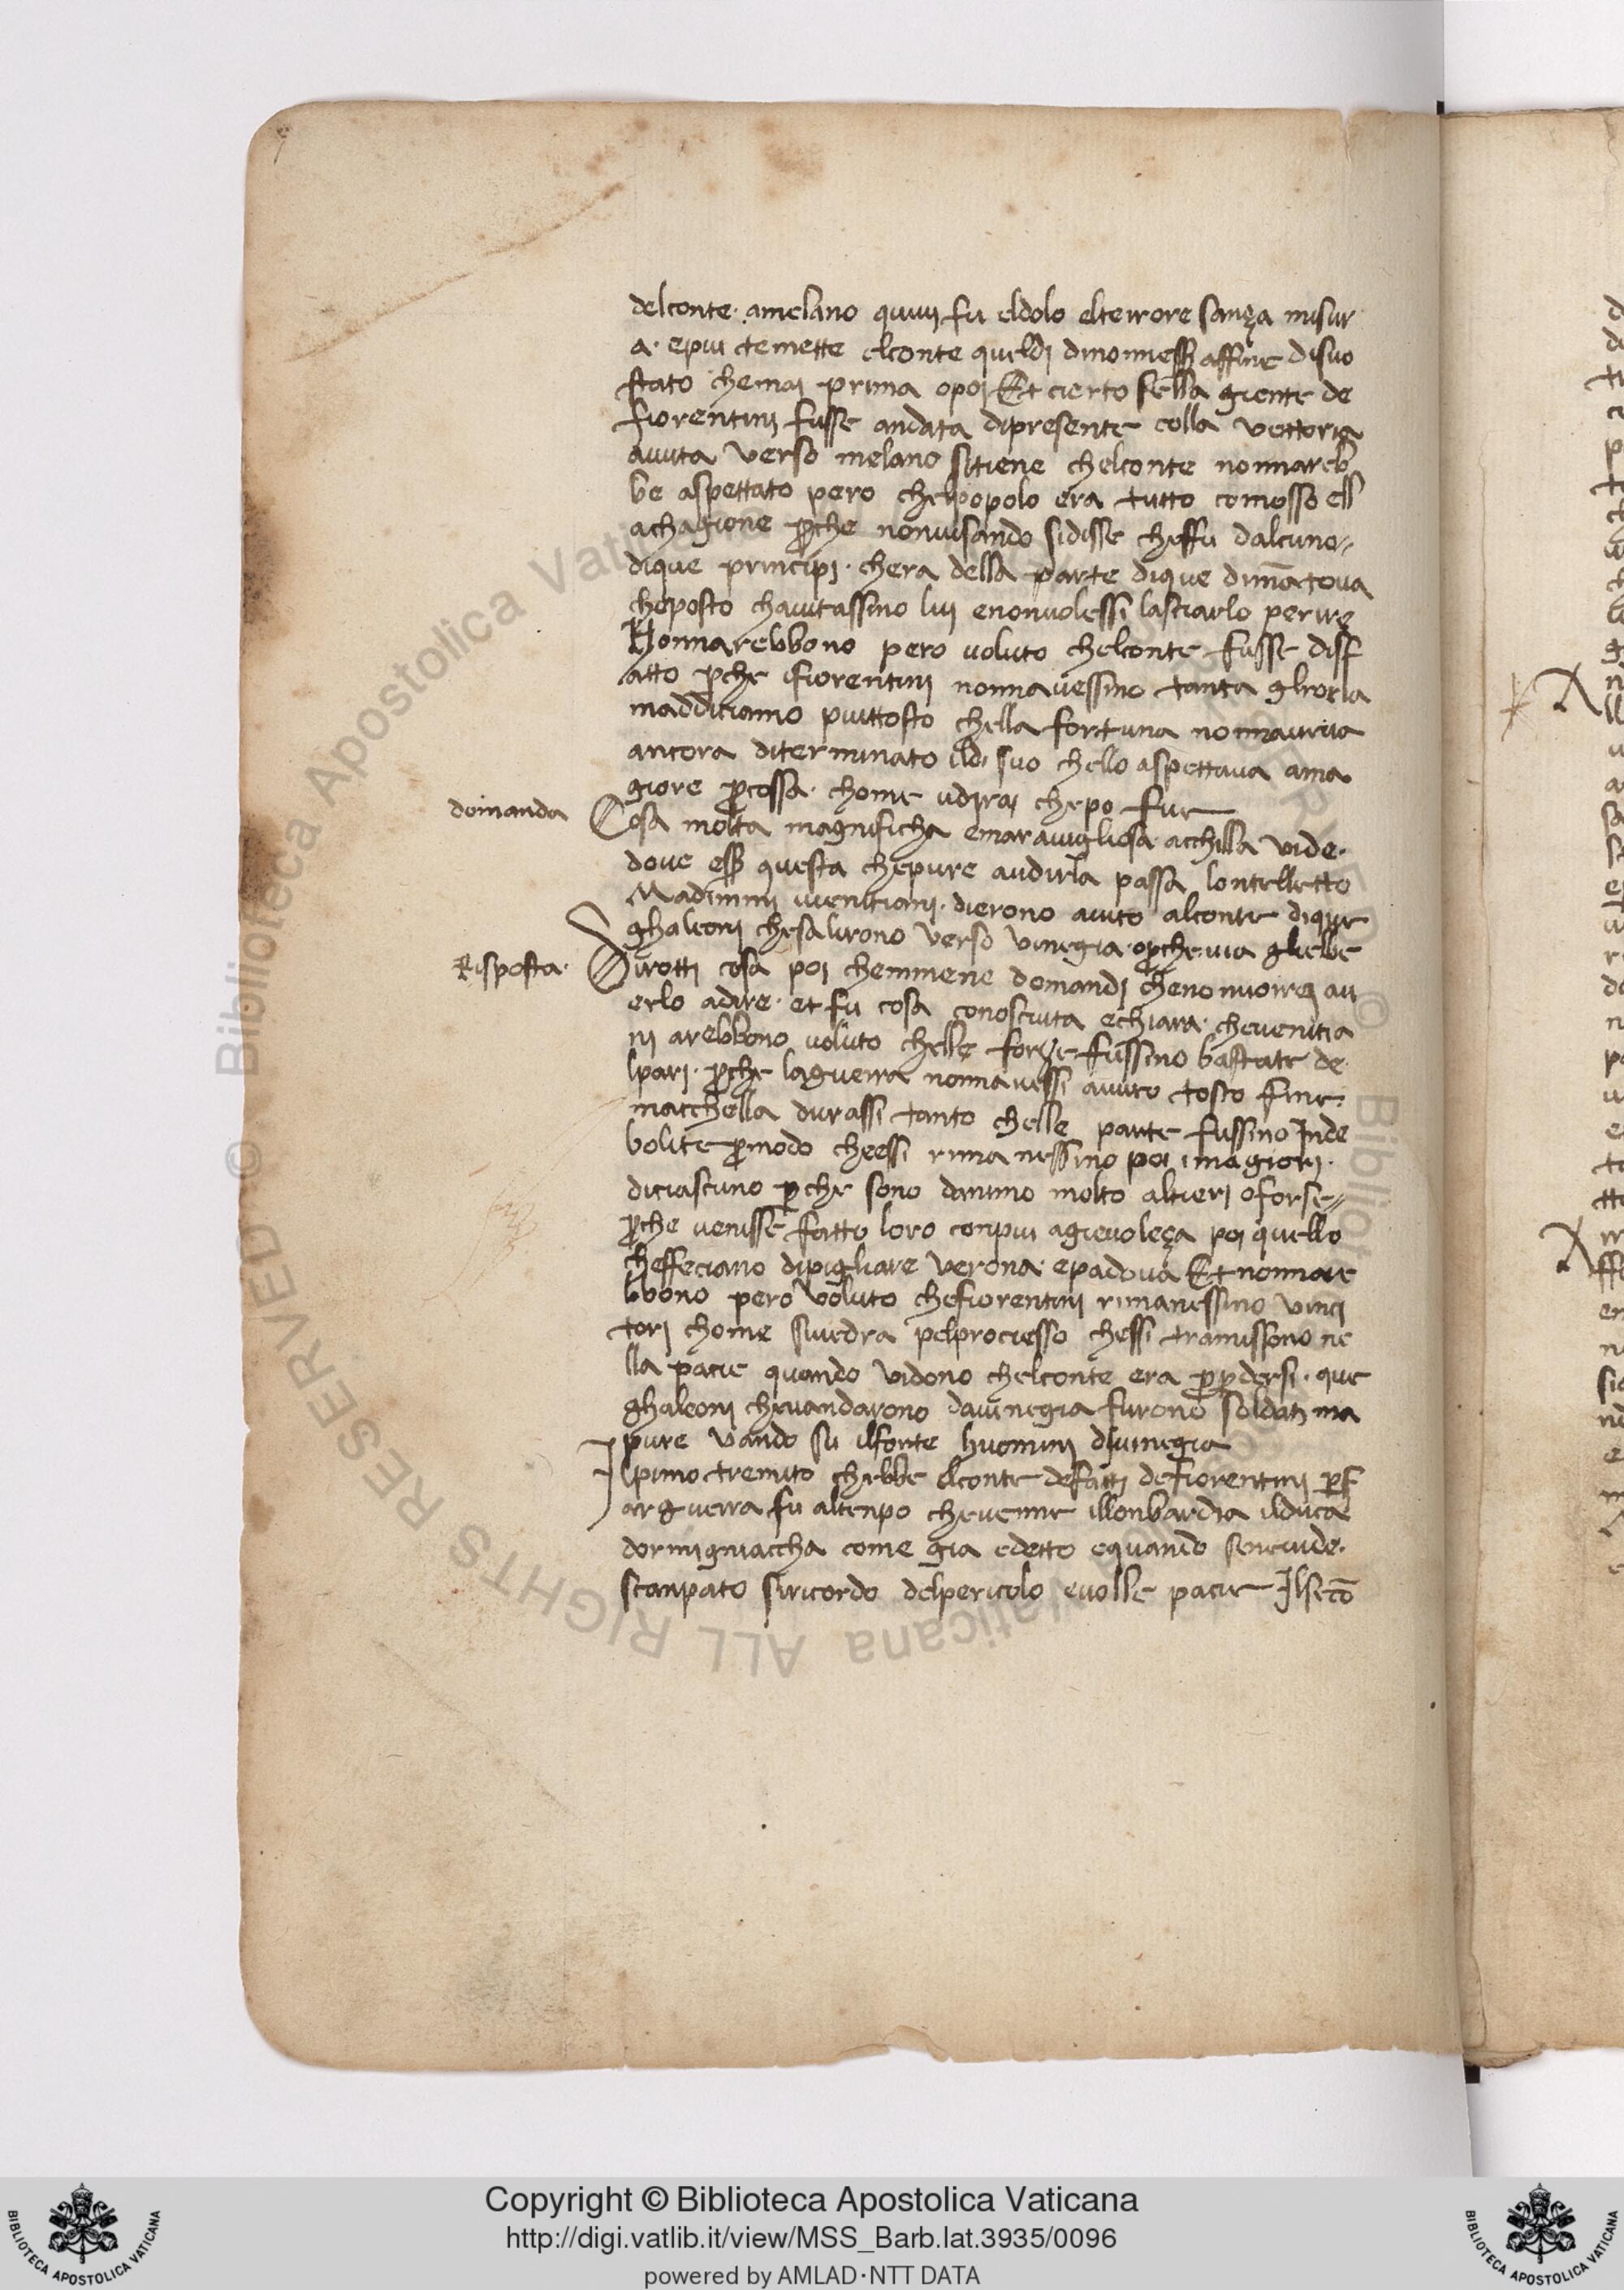 delconte · amelano quiuj fu eldolo elterrore sanza misur
a · epiu temette elconte queldj dinonnessere affine disuo
stato chemaj prima opoj Et cierto sella giente de
fiorentinj fusse andata dipresente colla vettoria
auuta verso melano sitiene chelconte nonnareb
be aspettato pero chelpopolo era tutto comosso ell
achagione perche nonuisando sidisse cheffu dalcuno
dique principi · chera della parte dique dimātoua
cheposto chaiutassino luj enonuolessi lasciarlo perire
Nonnarebbono pero uoluto chelconte fusse disf
atto perche ifiorentinj nonnauessino tanta ghroria
maddiciamo piuttosto chella fortuna nonnaueua
ancora diterminato ildi suo chello aspettaua ama
giore percossa · chome udiraj chepo fue
domanda Cosa molta magnificha emarauigliosa acchilla vide ·
doue essere questa chepure audirla passa lontelletto
Madimmj iuenitianj · dierono aiuto alconte dique
ghaleonj chesalirono verso vinegia · operche uia gliebbe
Risposta · Dirotti cosa poj chemmene domandj chenonuorrej au
erlo adire · et fu cosa conosciuta echiara · cheuenitia
nj arebbono uoluto chelle forze fussino bastate de
lparj · perche laguerra nonnauessi auuto tosto fine
macchella durassi tanto chelle parte fussino Inde
bolite permodo cheessi rimanessino poi imagiorj ·
diciascuno perche sono danimo molto altierj oforse
perche venisse fatto loro conpiu agieuoleça poj quello
cheffeciano dipigliare verona · epadoua Et nonnare
bbono pero voluto chefiorentinj rimanessino vinci
torj chome siuedra pelprociesso chessi tramissono ne
lla pacie quando vidono chelconte era per perdersi · que
ghaleonj cheuandarono dauinegia furono soldatj ma
pure vando su ilforte huominj diuinegia
Ilprimo tremito chebbe elconte defatti defiorentinj perf
ar guerra fu altenpo cheuenne illonbardia ilduca
dormigniaccha come gia edetto equando seneuide ·
scanpato siricordo delpericolo euolle pacie Ilsecō
Copyright © Biblioteca Apostolica Vaticana
http://digi.vatlib.it/view/MSS_Barb.lat.3935/0096
powered by AMLAD·NTT DATA